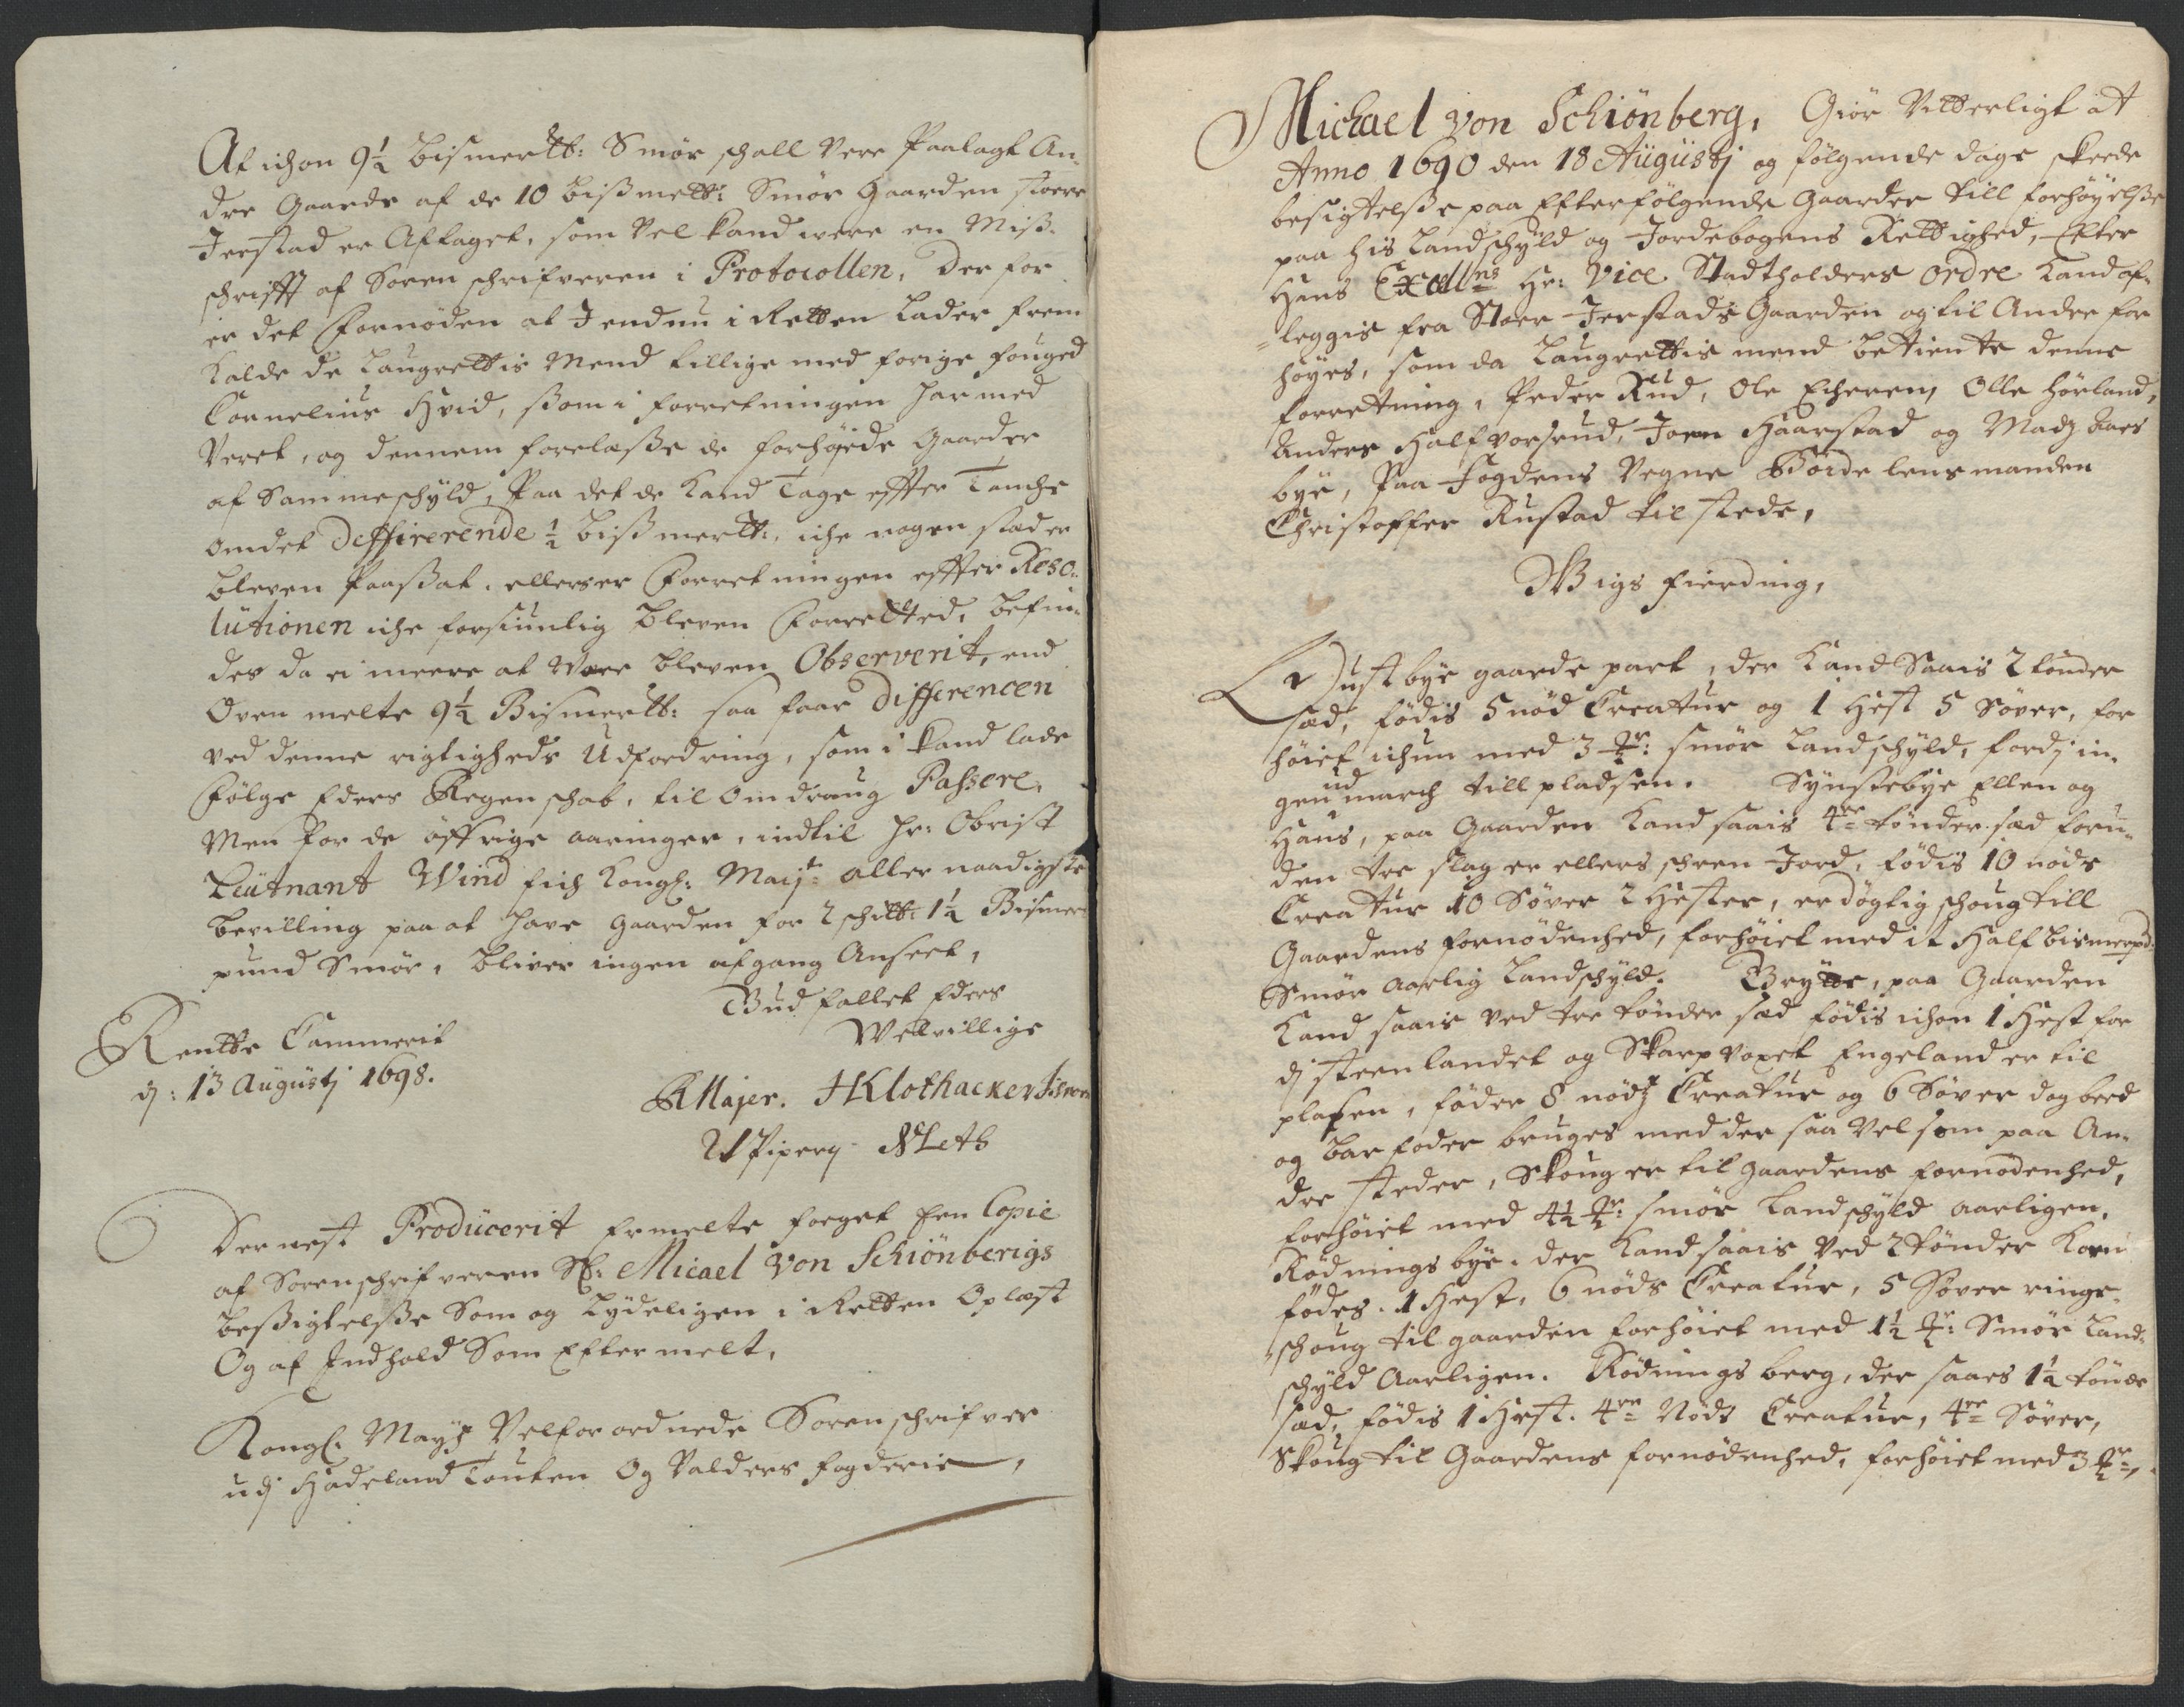 At ichon 9½ bismerlb: Smør schall Vere Paalagt An-
dre Gaarde af de 10 bißmerlb: Smør Gaarden stoere
Jerstad er Aftaget, som Vel kand were en Miß-
schrifft af Soren schrifveren i Protocollen, der for
er det fornøden at I endnu i Retten Lader frem
kalde de Laugrettis Mend tillige med forige fouged
Cornelius Hvid, ßom i forretningen har med
Veret, og dennem forelæße de forhøyede Gaarder
af Samme schyld, Paa det de kand Tage effter Tanche
om det deffirerende ½ bißmerlb:, iche nogen stæder
bleven Paaßat. ellers er forretningen effter Reso-
lutionen iche forsiunlig bleven forretted, befin-
des da ei meere at Være bleven Observerit, end
Oven melte 9½ Bismerlb: saa faar differencen
ved denne rigtigheds Udfordring, som i kand lade
følge Eders Regenschab, til omdraug Passere,
Men for de øffrige aaringer, indtil hr: Obrist
Leütnant Wind fich Kongl: Maij:t allernaadigste
bevilling paa at have Gaarden for 2 schilb: 1½ Bismer
pund Smør, bliver ingen afgang Anseet,
Rentte Cammerit
d: 13 Augustj 1698.
Bud fallet Eders
Welvillige
RMajer. HKlothacker
Pipery NLeth
Dernest Producerit Ermelte foeget Een Copie
af Sorenschrifveren Sl: Micael Von Schiönberigs
beßigtelße Som og Lydeligen i Retten Oplæst
Og af Indhold Som Efter melt,
Kongl: Mayz Velforordnede Sorenschrifver
udj Hadeland Touten Og Valders fogderie,
Michael von Schiönberg, Giør Vitterligt at
Anno 1690 den 18 Augustj og følgende dage skeede
besigtelße paa Efterfølgende Gaarder till forhøyelße
paa his Landschyld og Jordebogens Rettighed, Efter
Hans Excellns Hr: Vice Stadtholders ordre kand af-
leggis fra Stoer Jerstads Gaarden og til Andre for
høyes, som da Laugrettis mend betiente denne
forretning, Peder Rud, Ole Echeren, Olle Hørland,
Anders Halfvorsrud, Joen Haarstad og Madz Aaes
bye, Paa Fogdens Vegne Boide lensmanden
Christoffer Rustad til stede,
Wigs fierding,
Østbye gaarde part, der kand Saais 2 tønder
sæd, fødis 5 nød Creatur og 1 Hest 5 Søver, for
høiet ichun med 3 mr: smør Landschyld, fordj in-
gen ud march till pladsen. Synstebye Ellen og
Haus, paa Gaarden kand saais 4re tønder sæd foru-
den tre slag er ellers schren Jord, fødis 10 nøds
Creatur 10 Søver 2 Hester, er døgtig schoug till
Gaardens fornødenhed, forhøiet med it Half bismerpd:
Smør aarlig Landschyld. Brytte, paa Gaarden
kand saais ved tre tønder sæd fødis ichon 1 Hest for
dj steenlandet og Skarpvoxet Engeland er til
plasen, føder 8 nødz Creatur og 6 Søver dog beed
og bar foder bruges med der saa Vel som paa An-
dre steder, Skoug er til gaardens fornødenhed,
forhøiet med 4½ mr: smør Landschyld aarligen.
Rødnings bye. der kand saais Ved 2 tønder Korn
fødes. 1 Hest, 6 nøds Creatur, 5 Søver ringe
schoug til gaarden forhøiet med 1½ mr: Smør Land-
schyld Aarligen. Rødnings berg, der saaes 1½ tønde
sæd, fødis 1 Hest. 4re Nøds Creatur, 4re Søver,
Skoug til Gaardens fornødenhed, forhøiet med 3 mr,